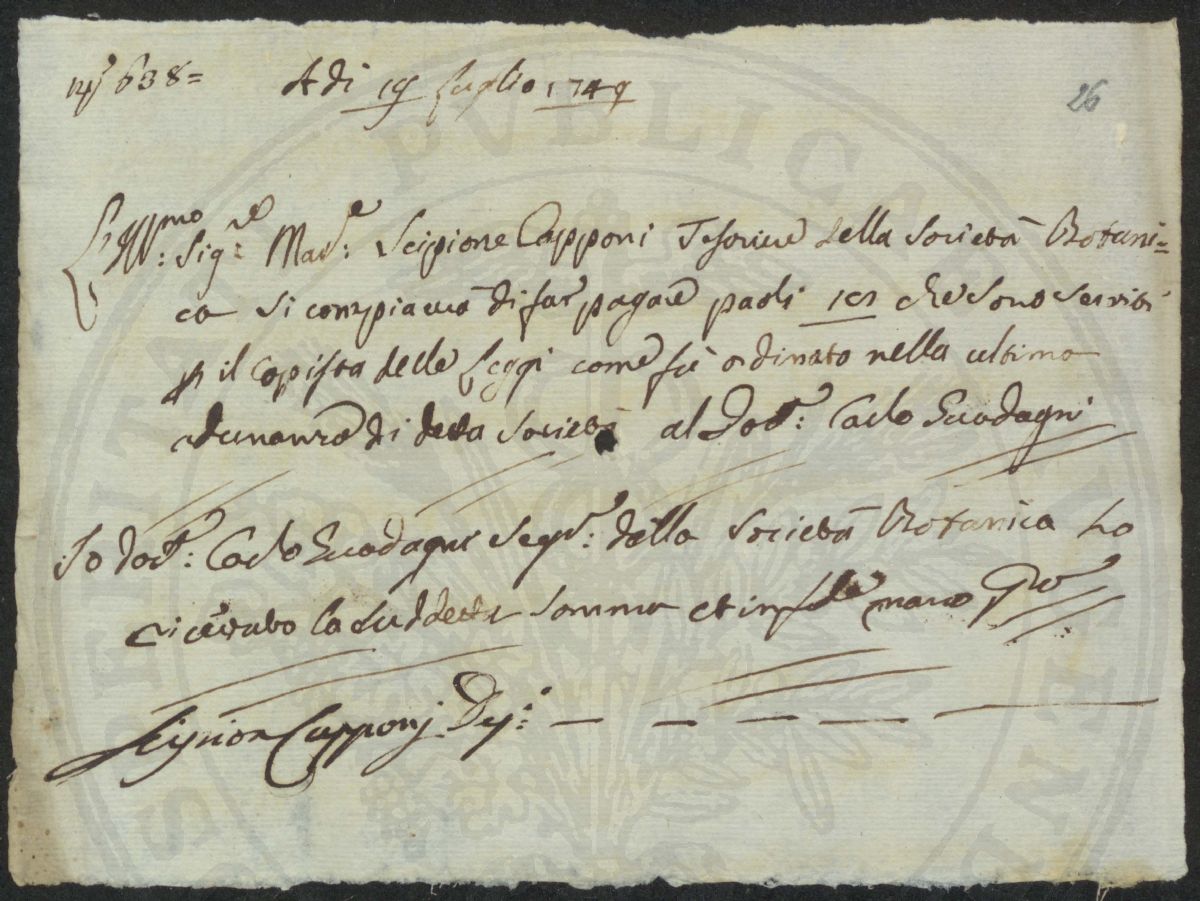 638= Adi 19 Luglio 1749
26
Ill:mo Sig:re Mar:e Scipione Capponi Tesorier della Società Botani=
ca si compiacerà di far pagare paoli che sono serviti
p il Copista delle Leggi come fù ordinato nella ultima
adunanza di detta Società al Dott:e Carlo Guadagni
Io Dott:e Carlo Guadagni Segr:o della Società Botanica ho
ricevuto la suddetta somma et in fede mano
Scipion Capponj